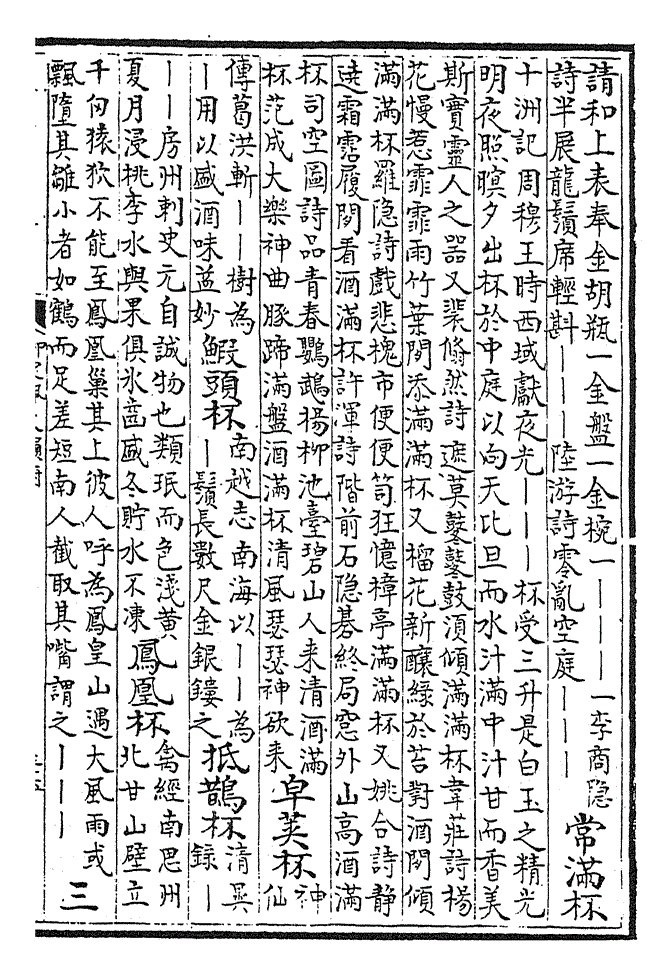 請和上表奉金胡瓶一金盤一金椀一｜｜｜｜一李商隐
詩半展龍鬚席輕斟｜｜｜陸游詩零亂空庭｜｜｜
常滿杯
十洲記周穆王時西域獻夜光｜｜｜杯受三升是白玉之精光
明夜照暝夕出杯於中庭以向天比旦而水汁滿中汁甘而香美
斯寶靈人之器又裴翛然詩遮莫鼕鼕鼓湏傾滿滿杯韋莊詩楊
花慢惹霏霏雨竹葉閒添滿滿杯又榴花新釀緑於苔對酒閒傾
滿滿杯羅隐詩戲悲槐市便便笥狂憶樟亭滿滿杯又姚合詩静
遶霜霑履閒看酒滿杯許渾詩階前石隐碁終局窓外山高酒滿
杯司空圖詩品青春鸚鵡楊柳池臺碧山人来清酒滿
杯范成大樂神曲豚蹄滿盤酒滿杯清風瑟瑟神欲来
皁莢杯
神
仙
傳葛洪斬｜｜樹為
｜用以盛酒味益妙
蝦頭杯
南越志南海以｜｜為
｜鬚長數尺金銀鏤之
抵鵲杯
清異
録｜
｜｜房州刺史元自誠物也類珉而色淺黄
夏月浸桃李水與果俱氷齒盛冬貯水不凍
鳳凰杯
禽經南思州
北甘山壁立
千仞猿狖不能至鳳凰巢其上彼人呼為鳳皇山遇大風雨或
飄墮其雛小者如鶴而足差短南人截取其嘴謂之｜｜｜
三